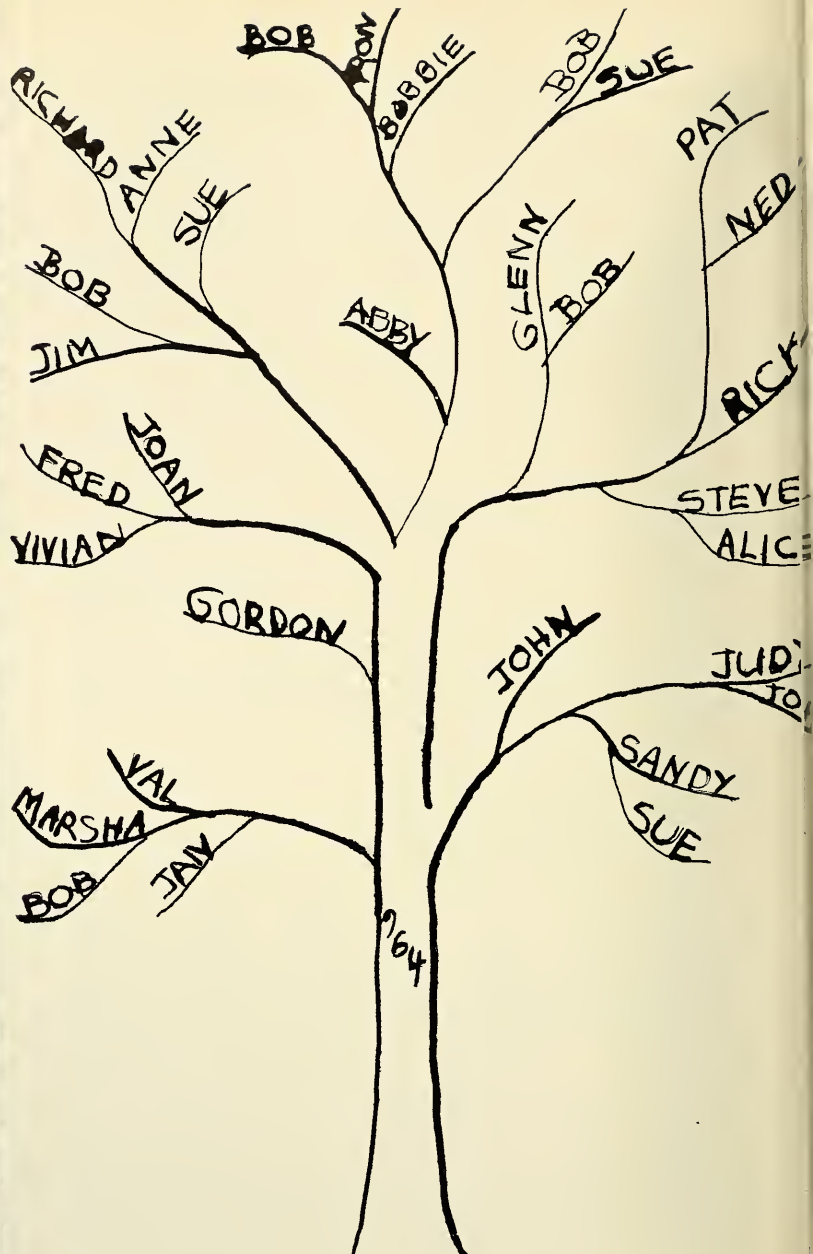 BOB
RON
BOBBIE
BOB
SUE
RICHARD
ANNE
SUE
PAT
NED
BOB
JIM
ABBY
GLENN
BOB
RICK
JOAN
FRED
VIVIAN
STEVE
ALICE
GORDON
JOHN
JUD
JO
SANDY
SUE
VAL
MARSHA
BOB
JAN
'64